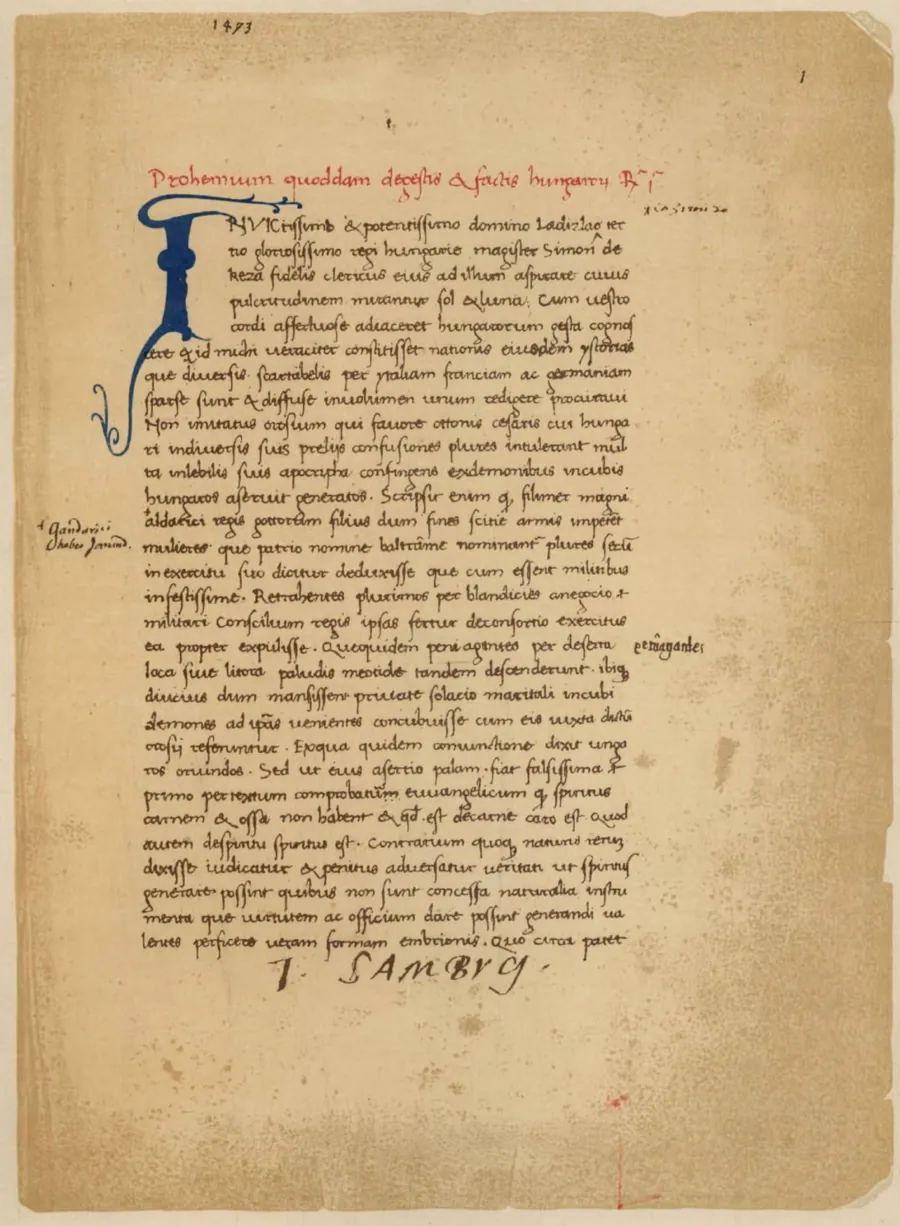 1473
1
Prohemium quoddam degestis & factis hungarij R
INVICtissimo & potentissimo domino Ladizlao ter
tio gloriosissimo regi hungarie magister Simon de
keza fidelis clericus eius ad illum aspirare cuius
pulcritudinem mirantur sol & luna. Cum vestro
cordi affectuose adiaceret hungarorum gesta cognos
cere & id michi veraciter constitisset nationis eiusdem ystorias
que diversis scartabelis per ytaliam franciam ac germaniam
sparse sunt & diffuse involumen unum redigere procuravi
Non imitatus orosium qui favore ottonis cesaris cui hunga
ri indiversis suis prelijs confusiones plures intulerant mul
ta inlebilis suis apocripha confingens exdemonibus incubis
hungaros aseruit generatos. Scripsit enim q filimer magni
aldarici regis gottorum filius dum fines scitie armis imperet
mulieres que patrio nomine baltrame nominant plures secu
in exercitu suo dicitur deduxisse que cum essent militibus
infestissime. Retrahentes plurimos per blandicies anegocio
militari Consilium regis ipsas fertur deconsortio exercitus
ea propter expulisse. Quequidem peruagentes per deserta
peruagantes
loca sive litora paludis meotide tandem descenderunt. ibiq
diucius dum mansissent private solacio maritali incubi
demones ad ipas venientes concubuisse cum eis iuxta dictu
orosij referuntur. Exqua quidem coniunctione dixit unga
ros oriundos. Sed ut eius asertio palam fiat falsissima
primo per textum comprobatum euuangelicum q spiritus
carnem & ossa non habent & qd est decarne caro est. Quod
autem despiritu spiritus est. Contrarium quoq naturis reru
dixisse iudicatur & penitus adversatur veritati ut spiritus
generare possint quibus non sunt concessa naturalia instru
menta que virtutem ac officium dare possint generandi va
lentes perficere veram formam embrionis. Quo circa patet
J. SAMBVCJ.